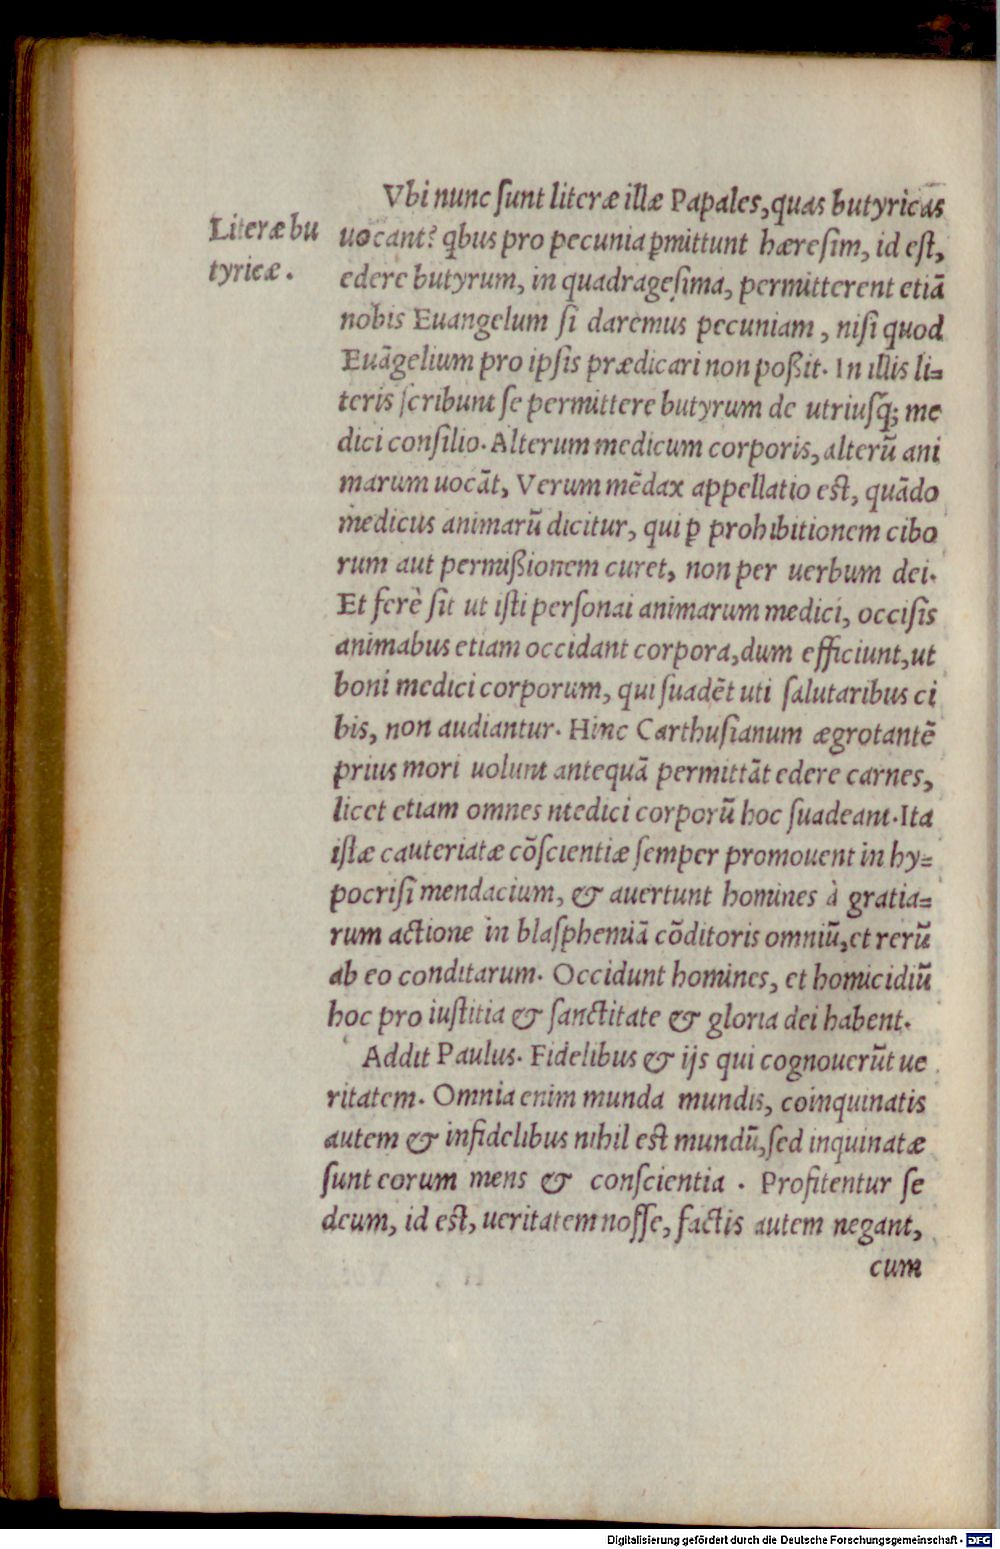 Vbi nunc ſunt literæ illæ Papales, quas butyricas
Literæ bu
tyricæ.
uocant? qbus pro pecunia ꝑmittunt hæreſim, id eſt,
edere butyrum, in quadrageſima, permitterent etiā
nobis Euangelum ſi daremus pecuniam, niſi quod
Euāgelium pro ipſis prædicari non poßit. In illis li=
teris ſcribunt ſe permittere butyrum de utriuſq; me
dici conſilio. Alterum medicum corporis, alterū ani
marum uocāt, Verum mēdax appellatio eſt, quādo
medicus animarū dicitur, qui ꝑ prohibitionem cibo
rum aut permißionem curet, non per uerbum dei.
Et ferè ſit ut iſti perſonai animarum medici, occiſis
animabus etiam occidant corpora, dum efficiunt, ut
boni medici corporum, qui ſuadēt uti ſalutaribus ci
bis, non audiantur. Hinc Carthuſianum ægrotantē
prius mori uolunt antequā permittāt edere carnes,
licet etiam omnes medici corporū hoc ſuadeant. Ita
iſtæ cauteriatæ cōſcientiæ ſemper promouent in hy=
pocriſi mendacium, & auertunt homines à gratia=
rum actione in blaſphemiā cōditoris omniū, et rerū
ab eo conditarum. Occidunt homines, et homicidiū
hoc pro iuſtitia & ſanctitate & gloria dei habent.
Addit Paulus. Fidelibus & ijs qui cognouerūt ue
ritatem. Omnia enim munda mundis, coinquinatis
autem & infidelibus nihil eſt mundū, ſed inquinatæ
ſunt eorum mens & conſcientia. Profitentur ſe
deum, id eſt, ueritatem noſſe, factis autem negant,
cum
Digitalisierung gefördert durch die Deutsche Forschungsgemeinschaft - DFG